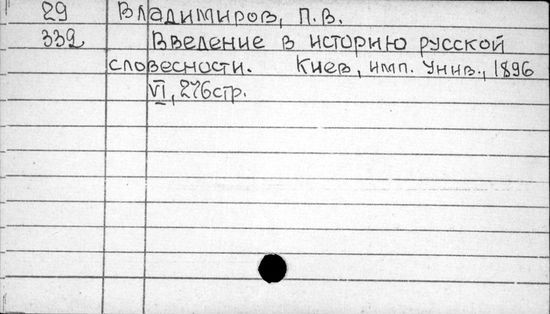 29 Владимиров, П.В.
339 Введение в историю русской
словесности. Киев, имп. Унив., 1896
VI, 276стр.